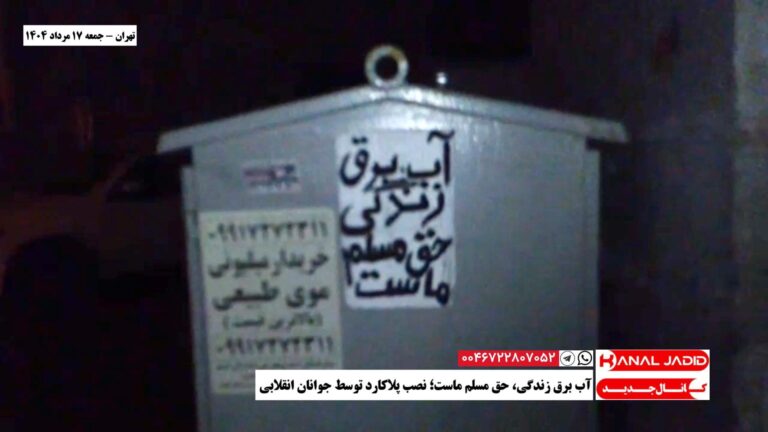 تهران - جمعه ۱۷ مرداد ۱۴۰۴
آب برق
زندگی
حق مسلم
ماست
۰۹۹۱۷۲۷۲۳۱۱
خریدار میلیونی
موی طبیعی
(بالاترین قیمت)
۰۹۹۱۷۲۷۲۳۱۱
۰۰۴۶۷۲۲۸۰۷۰۵۲
KANAL JADID
کانال جدید
آب برق زندگی، حق مسلم ماست؛ نصب پلاکارد توسط جوانان انقلابی